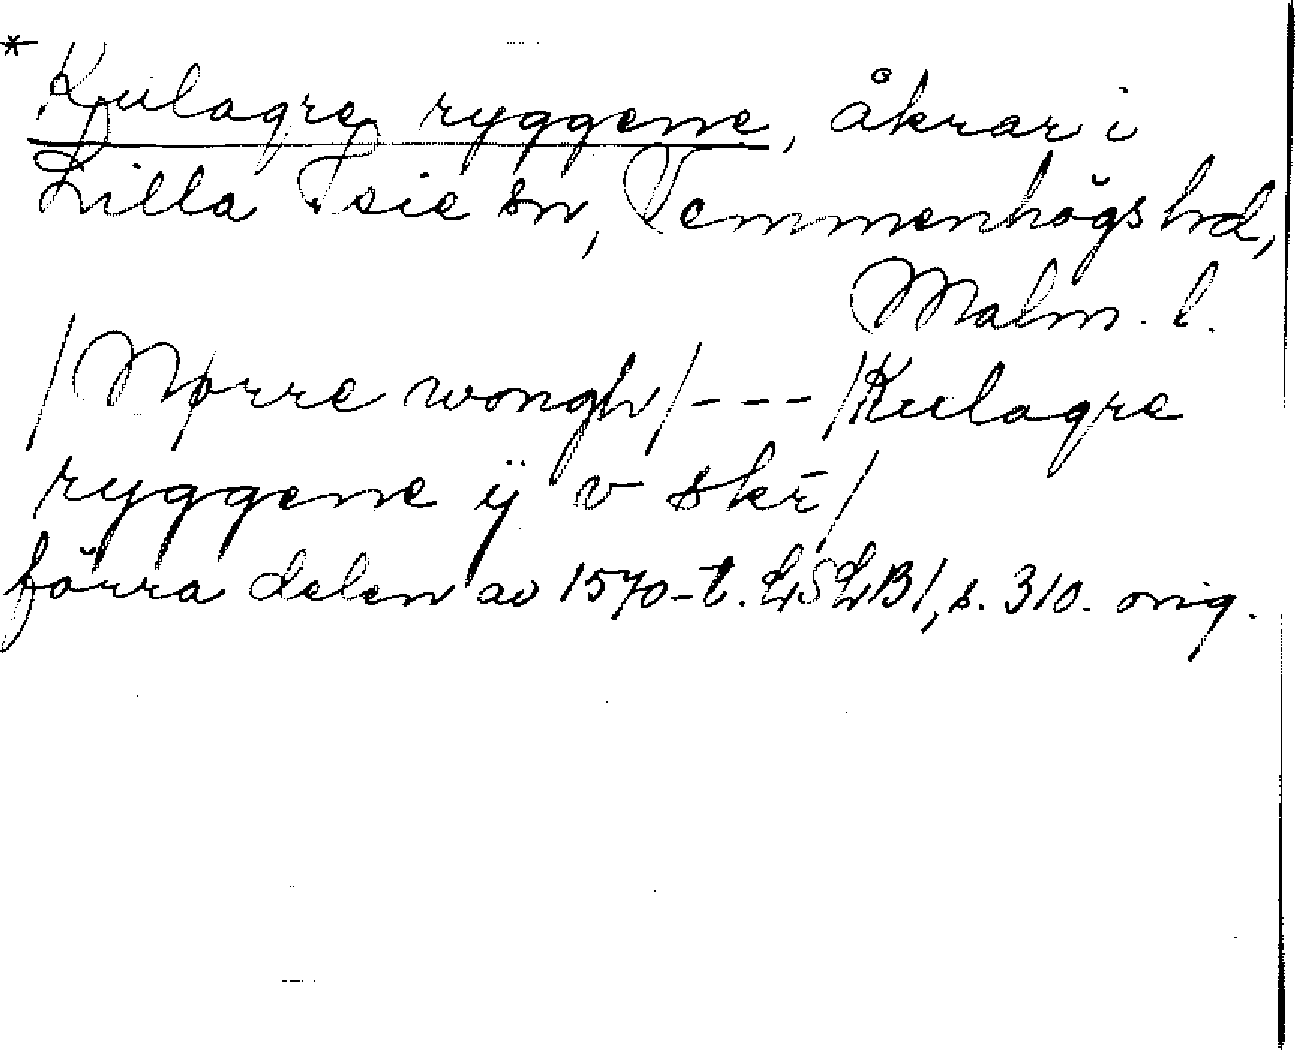 * Kulagre ryggene, åkrar i
Lilla Beie sn, Vemmenhögs hd,
Malm. l.
/Nørre wongh/ - - - /Kulagre
ryggene ÿ v skr̄/
förra delen av 1570-t. LSLB 1, s. 310. orig.